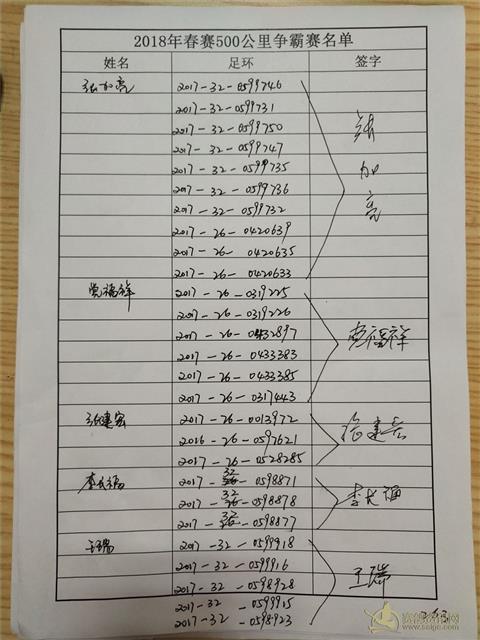 2018年春赛500公里争霸赛名单
姓名 足环 签字
张加亮 2017-32-0599746
2017-32-0599731
2017-32-0599750 张
2017-32-0599747
2017-32-0599735 加
2017-32-0599736
2017-32-0599732 亮
2017-26-0420639
2017-26-0420635
2017-26-0420633
党福祥 2017-26-0319225
2017-26-0319226
2017-26-0432897 党福祥
2017-26-0433383
2017-26-0433385
2017-26-0317443
张建宏 2017-26-0012972
2016-26-0597621 张建宏
2017-26-0528285
李长福 2017-32-0598871
2017-32-0598878 李长福
2017-32-0598877
王瑞 2017-32-0599918
2017-32-0599916
2017-32-0598928 王瑞
2017-32-0599915
2017-32-0598923
赛鸽资讯网
www.saige.com